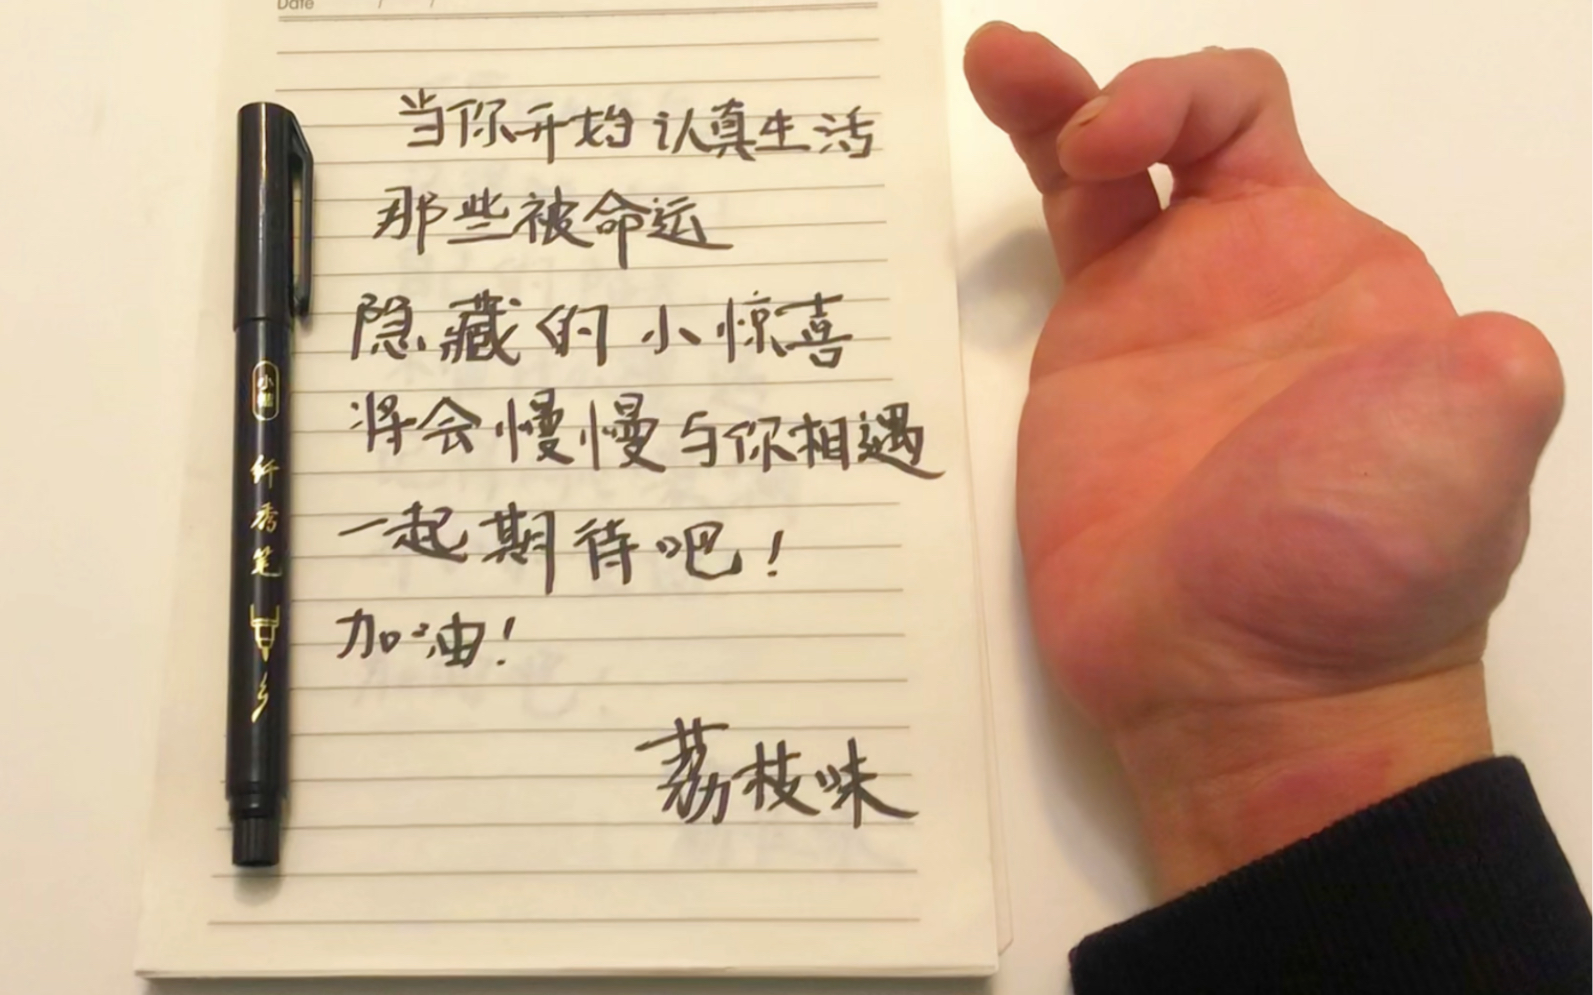 Date / /
当你开始认真生活
那些被命运
隐藏的小惊喜
将会慢慢与你相遇
一起期待吧！
加油！
荔枝味
纤秀笔